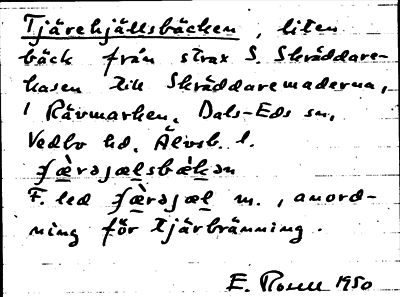 Tjärehjällsbäcken, liten
bäck från strax S. Skräddare-
kasen till Skräddaremaderna,
i Rävmarken. Dals-Eds sn,
Vedbo hd. Älvsb. l.
F. led m., anord-
ning för tjärbränning.
E. 1950